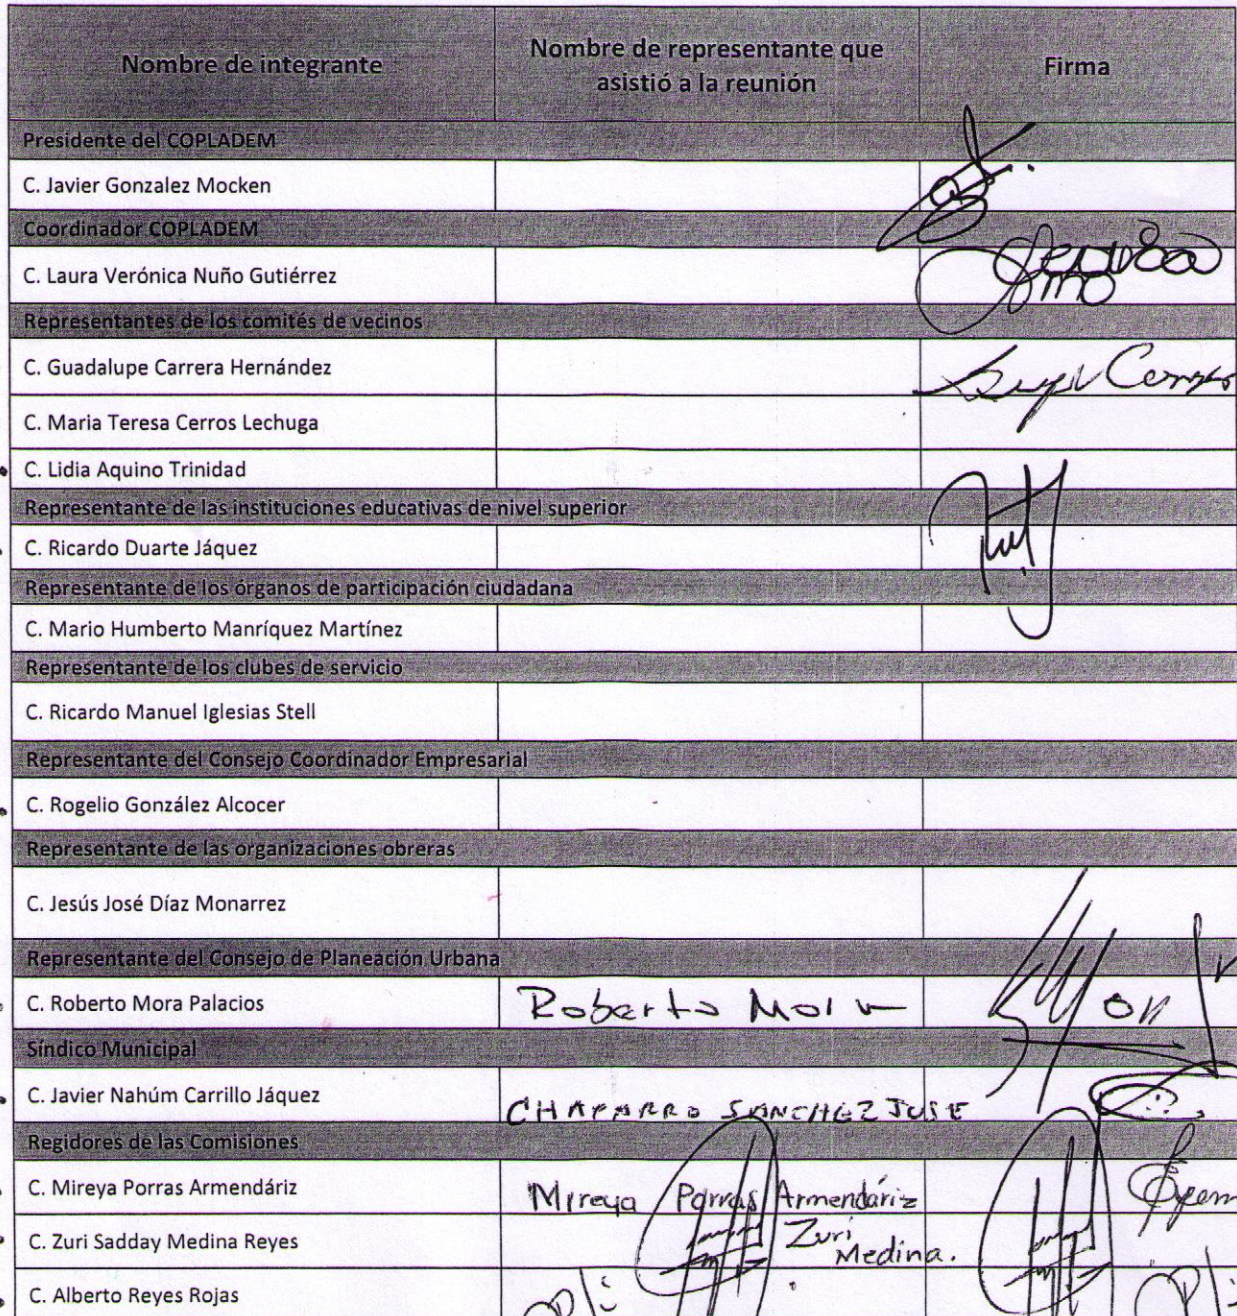 Nombre de integrante
Nombre de representante que
asistió a la reunión
Firma
Presidente del COPLADEM
C. Javier Gonzalez Mocken
Coordinador COPLADEM
C. Laura Verónica Nuño Gutiérrez
Representantes de los comités de vecinos
C. Guadalupe Carrera Hernández
C. Maria Teresa Cerros Lechuga
C. Lidia Aquino Trinidad
Representante de las instituciones educativas de nivel superior
C. Ricardo Duarte Jáquez
Representante de los órganos de participación ciudadana
C. Mario Humberto Manríquez Martínez
Representante de los clubes de servicio
C. Ricardo Manuel Iglesias Stell
Representante del Consejo Coordinador Empresarial
C. Rogelio González Alcocer
Representante de las organizaciones obreras
C. Jesús José Díaz Monarrez
Representante del Consejo de Planeación Urbana
C. Roberto Mora Palacios Roberto Mora
Síndico Municipal
C. Javier Nahúm Carrillo Jáquez CHAPARRO SANCHEZ JOSE
Regidores de las Comisiones
C. Mireya Porras Armendáriz Mireya Porras Armendáriz
C. Zuri Sadday Medina Reyes Zuri Medina.
C. Alberto Reyes Rojas